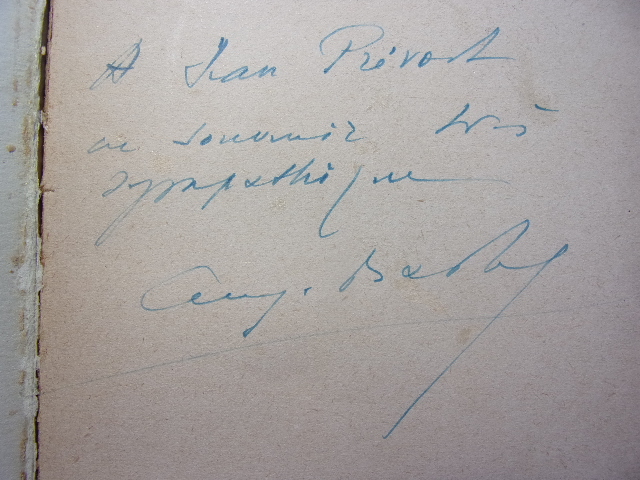 A Jean Prévost
en souvenir très
sympathique
Aug.